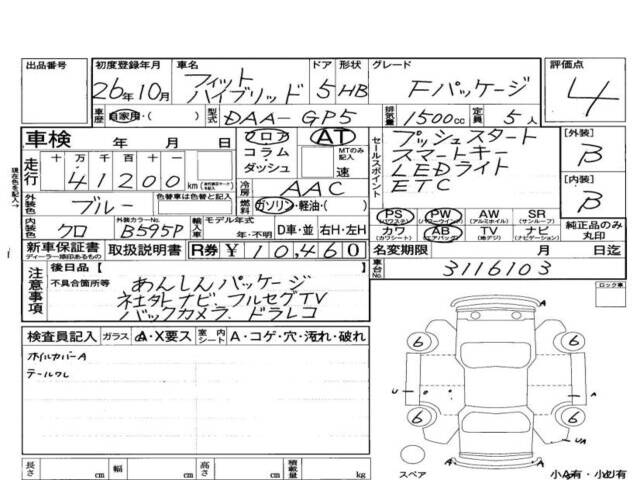 出品番号
初度登録年月
26年10月
車名
フィット
ハイブリッド
ドア
5
形状
HB
グレード
Fパッケージ
評価点
4
車歴
自家用・( )
型式
DAA-GP5
排気量
1500cc
定員
5人
車検 年 月 日
フロア
コラム・
ダッシュ
AT
MTのみ記入
速
セールスポイント
プッシュスタート
スマートキー
LEDライト
ETC
[外装]
B
[内装]
B
現在色を記入→
走行
十 万 千 百 十 一
41200
km
冷房
AAC
燃料
ガソリン・軽油・( )
外装色
ブルー
色替車は色替と記入
内装色
クロ
外装カラーNo.
B595P
輸入車
モデル年式
年・不明
D車・並
右H・左H
PS
(パワステ)
PW
(パワーウインド)
AW
(アルミホイル)
SR
(サンルーフ)
カワ
(カワシート)
AB
(エアバッグ)
TV
(地デジ)
ナビ
(ナビゲーション)
純正品のみ
丸印
新車保証書
ディーラー捺印あるもの
取扱説明書
R券
¥10,460
名変期限 月 日迄
車台No.
3116103
注意事項
後日品【 】
不具合箇所等
あんしんパッケージ
社外ナビ フルセグTV
バックカメラ、ドラレコ
ロック車
検査員記入
ガラス
A・X要ス
室内
シート
A・コゲ・穴・汚れ・破れ
ホイルカバーA
テールワレ
6
6
U
A
6
6
UA
A
スペア
小A有・小U有
長さ cm
幅 cm
高さ cm
積載量 kg